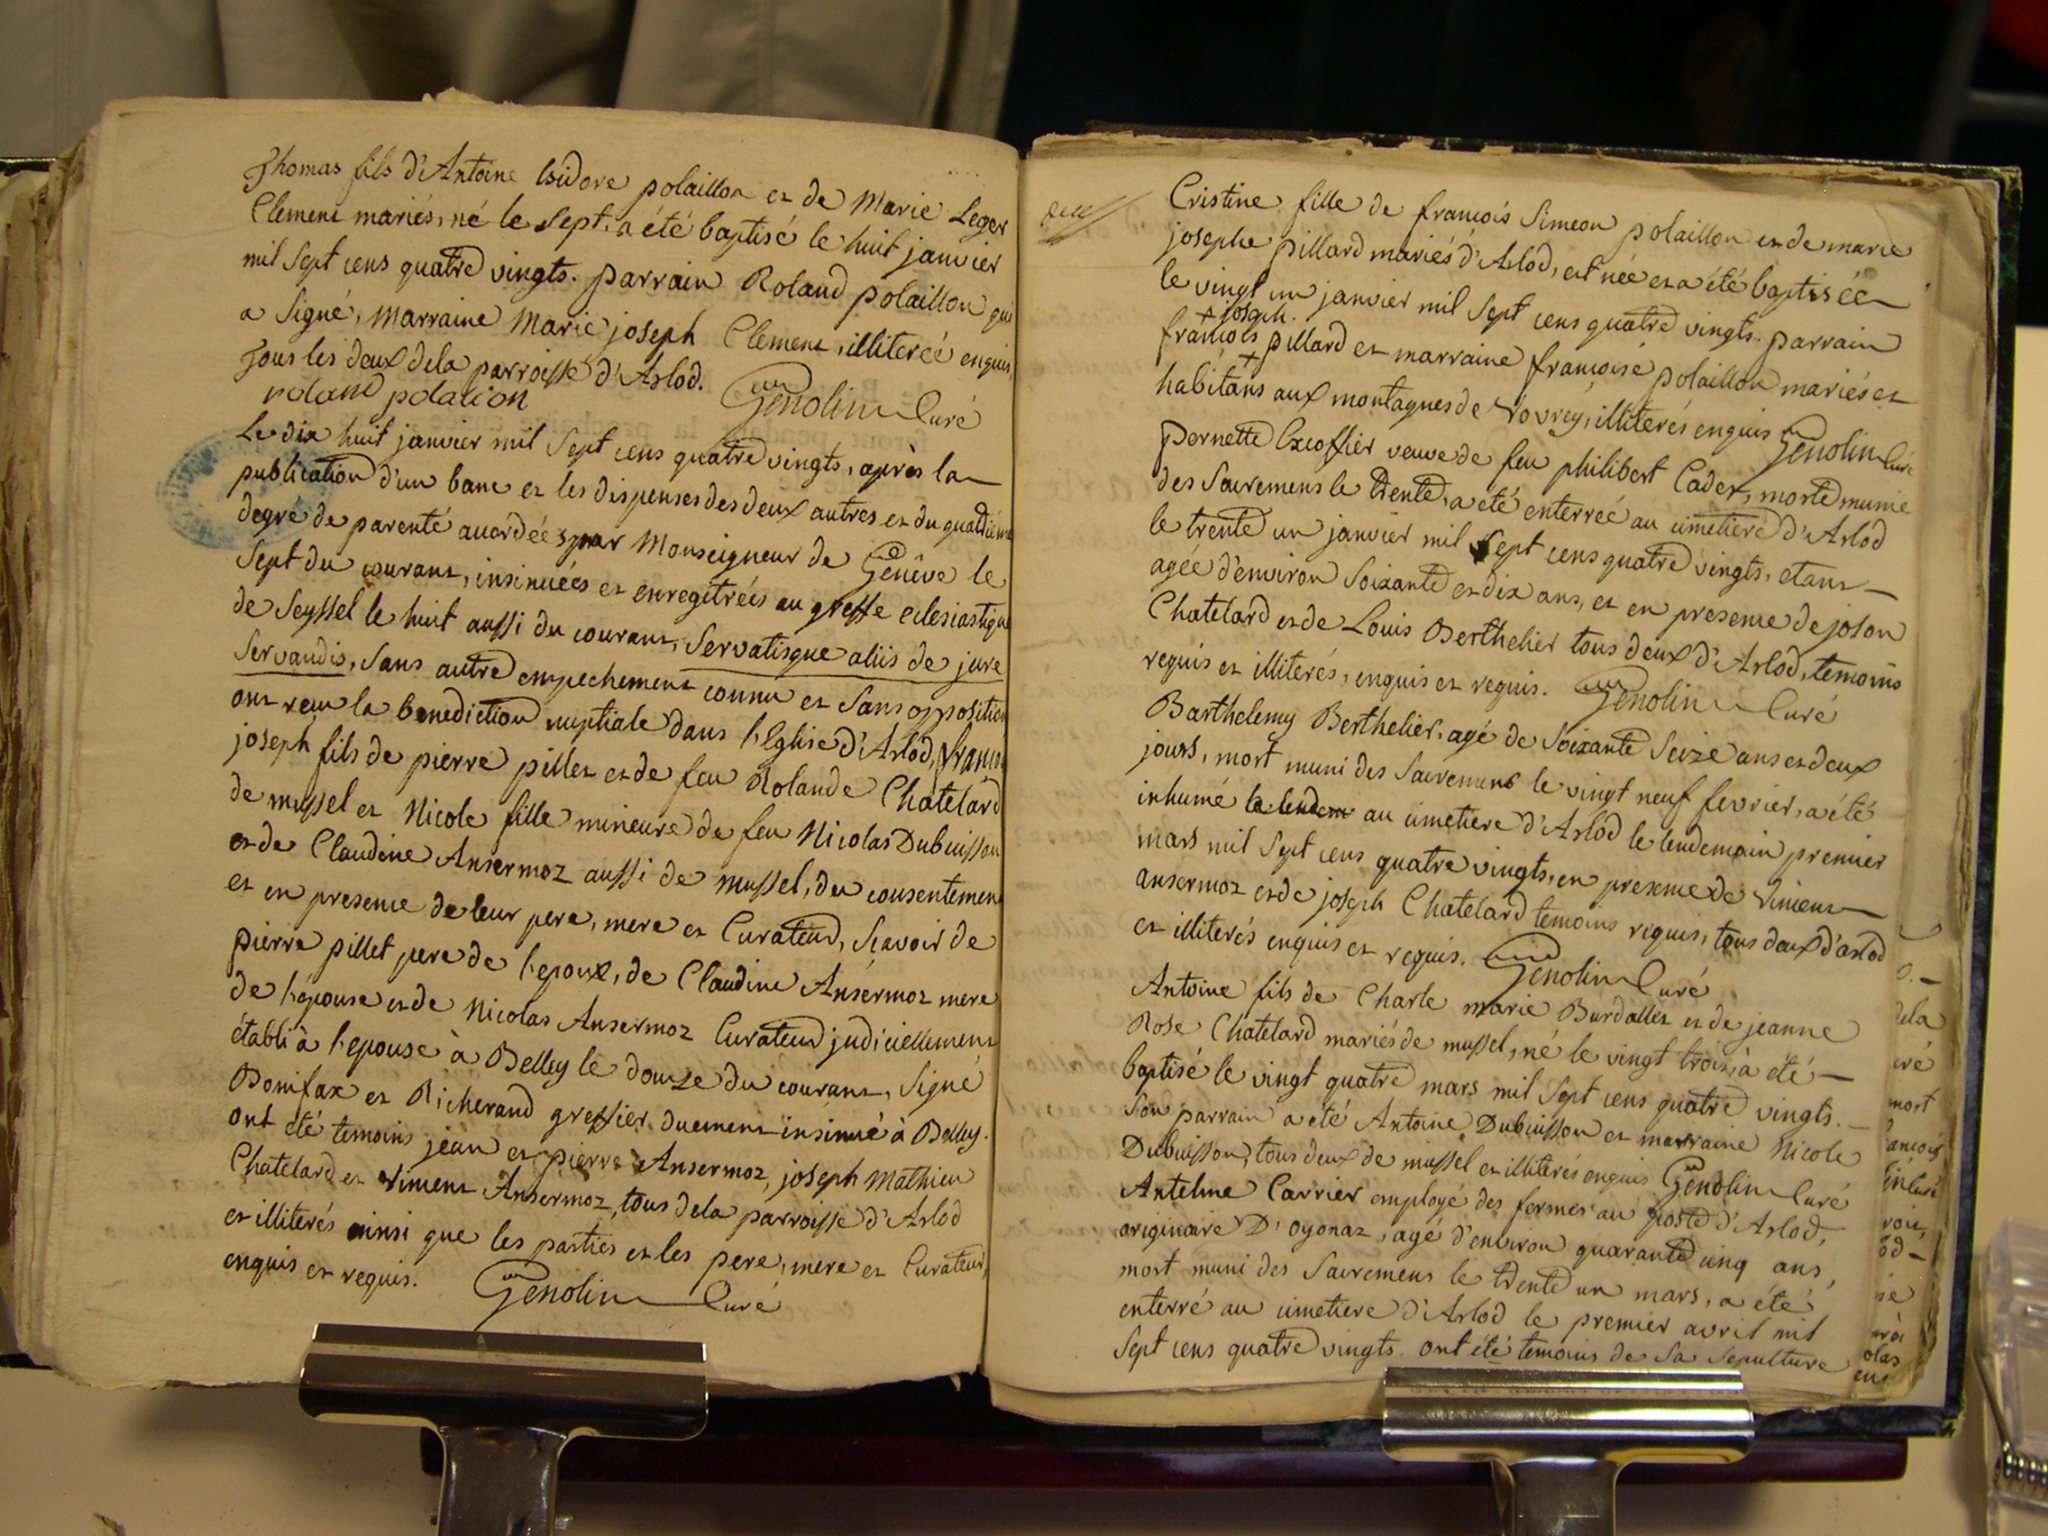 Thomas fils d'Antoine Isidore polaillon et de Marie Leger
Clement mariés, né le sept, a été baptisé le huit janvier
mil sept cens quatre vingts. parrain Roland polaillon qui
a signé, marraine Marie joseph Clement, illiteréé enquis,
Tous les deux de la parroisse d'Arlod.
roland polalion Genolin Curé
Le dix huit janvier mil sept cens quatre vingts, après la
publication d'un banc et les dispenses des deux autres et du quatrième
degré de parenté accordéés par Monseigneur de Genêve le
sept du courant, insinuéés et enregitréés au greffe eclesiastique
de Seyssel le huit aussi du courant, servatisque aliis de jure
servandis, sans autre empechement connu et sans opposition
ont recu la benediction nuptiale dans l'Eglise d'Arlod, francois
joseph fils de pierre pillet et de feu Rolande Chatelard
de mussel et Nicole fille mineure de feu Nicolas Dubuisson
et de Claudine Ansermoz aussi de mussel, du consentement
et en presence de leur pere, mere et Curateur, scavoir de
pierre pillet pere de l'epoux, de Claudine Ansermoz mere
de l'epouse et de Nicolas Ansermoz Curateur judiciellement
établi à l'epouse à Belley le douze du courant, signé
Bonifax et Richerand greffier duement insinué à Belley.
ont été temoins jean et pierre Ansermoz, joseph Mathieu
Chatelard et vincent Ansermoz, tous de la parroisse d'Arlod
et illiterés ainsi que les parties et les pere, mere et Curateur,
enquis et requis. Genolin Curé
Cristine fille de francois Simeon polaillon et de marie
josephe pillard mariés d'Arlod, est née et a été baptisée
le vingt un janvier mil sept cens quatre vingts. parrain
joseph.
francois pillard et marraine francoise polaillon mariés et
habitans aux montagnes de vovrey, illiterés enquis Genolin Curé
pernette Excoffier veuve de feu philibert Cadet, morte munie
des sacremens le trente, a été enterréé au cimetiere d'Arlod
le trente un janvier mil sept cens quatre vingts, etant
agéé d'environ soixante et dix ans, et en presence de joson
Chatelard et de Louis Berthelier tous deux d'Arlod, temoins
requis et illiterés, enquis et requis. Genolin Curé
Barthelemy Berthelier, agé de soixante seize ans et deux
jours, mort muni des sacremens le vingt neuf fevrier, a été
inhumé le lendem au cimetiere d'Arlod le lendemain premier
mars mil sept cens quatre vingts, en presence de vincent
ansermoz et de joseph Chatelard temoins requis, tous deux d'arlod
et illiterés enquis et requis. Genolin Curé
Antoine fils de Charle marie Burdallet et de jeanne
Rose Chatelard mariés de mussel, né le vingt trois, à été
baptisé le vingt quatre mars mil sept cens quatre vingts.
son parrain a été Antoine Dubuisson et marraine Nicole
Dubuisson, tous deux de mussel et illiterés enquis Genolin Curé
Antelme Carrier employé des fermes au poste d'Arlod,
originaire D'oyonaz, agé d'environ quarante cinq ans,
mort muni des sacremens le trente un mars, a été
enterré au cimetiere d'Arlod le premier avril mil
sept cens quatre vingts. ont été temoins de sa sepulture